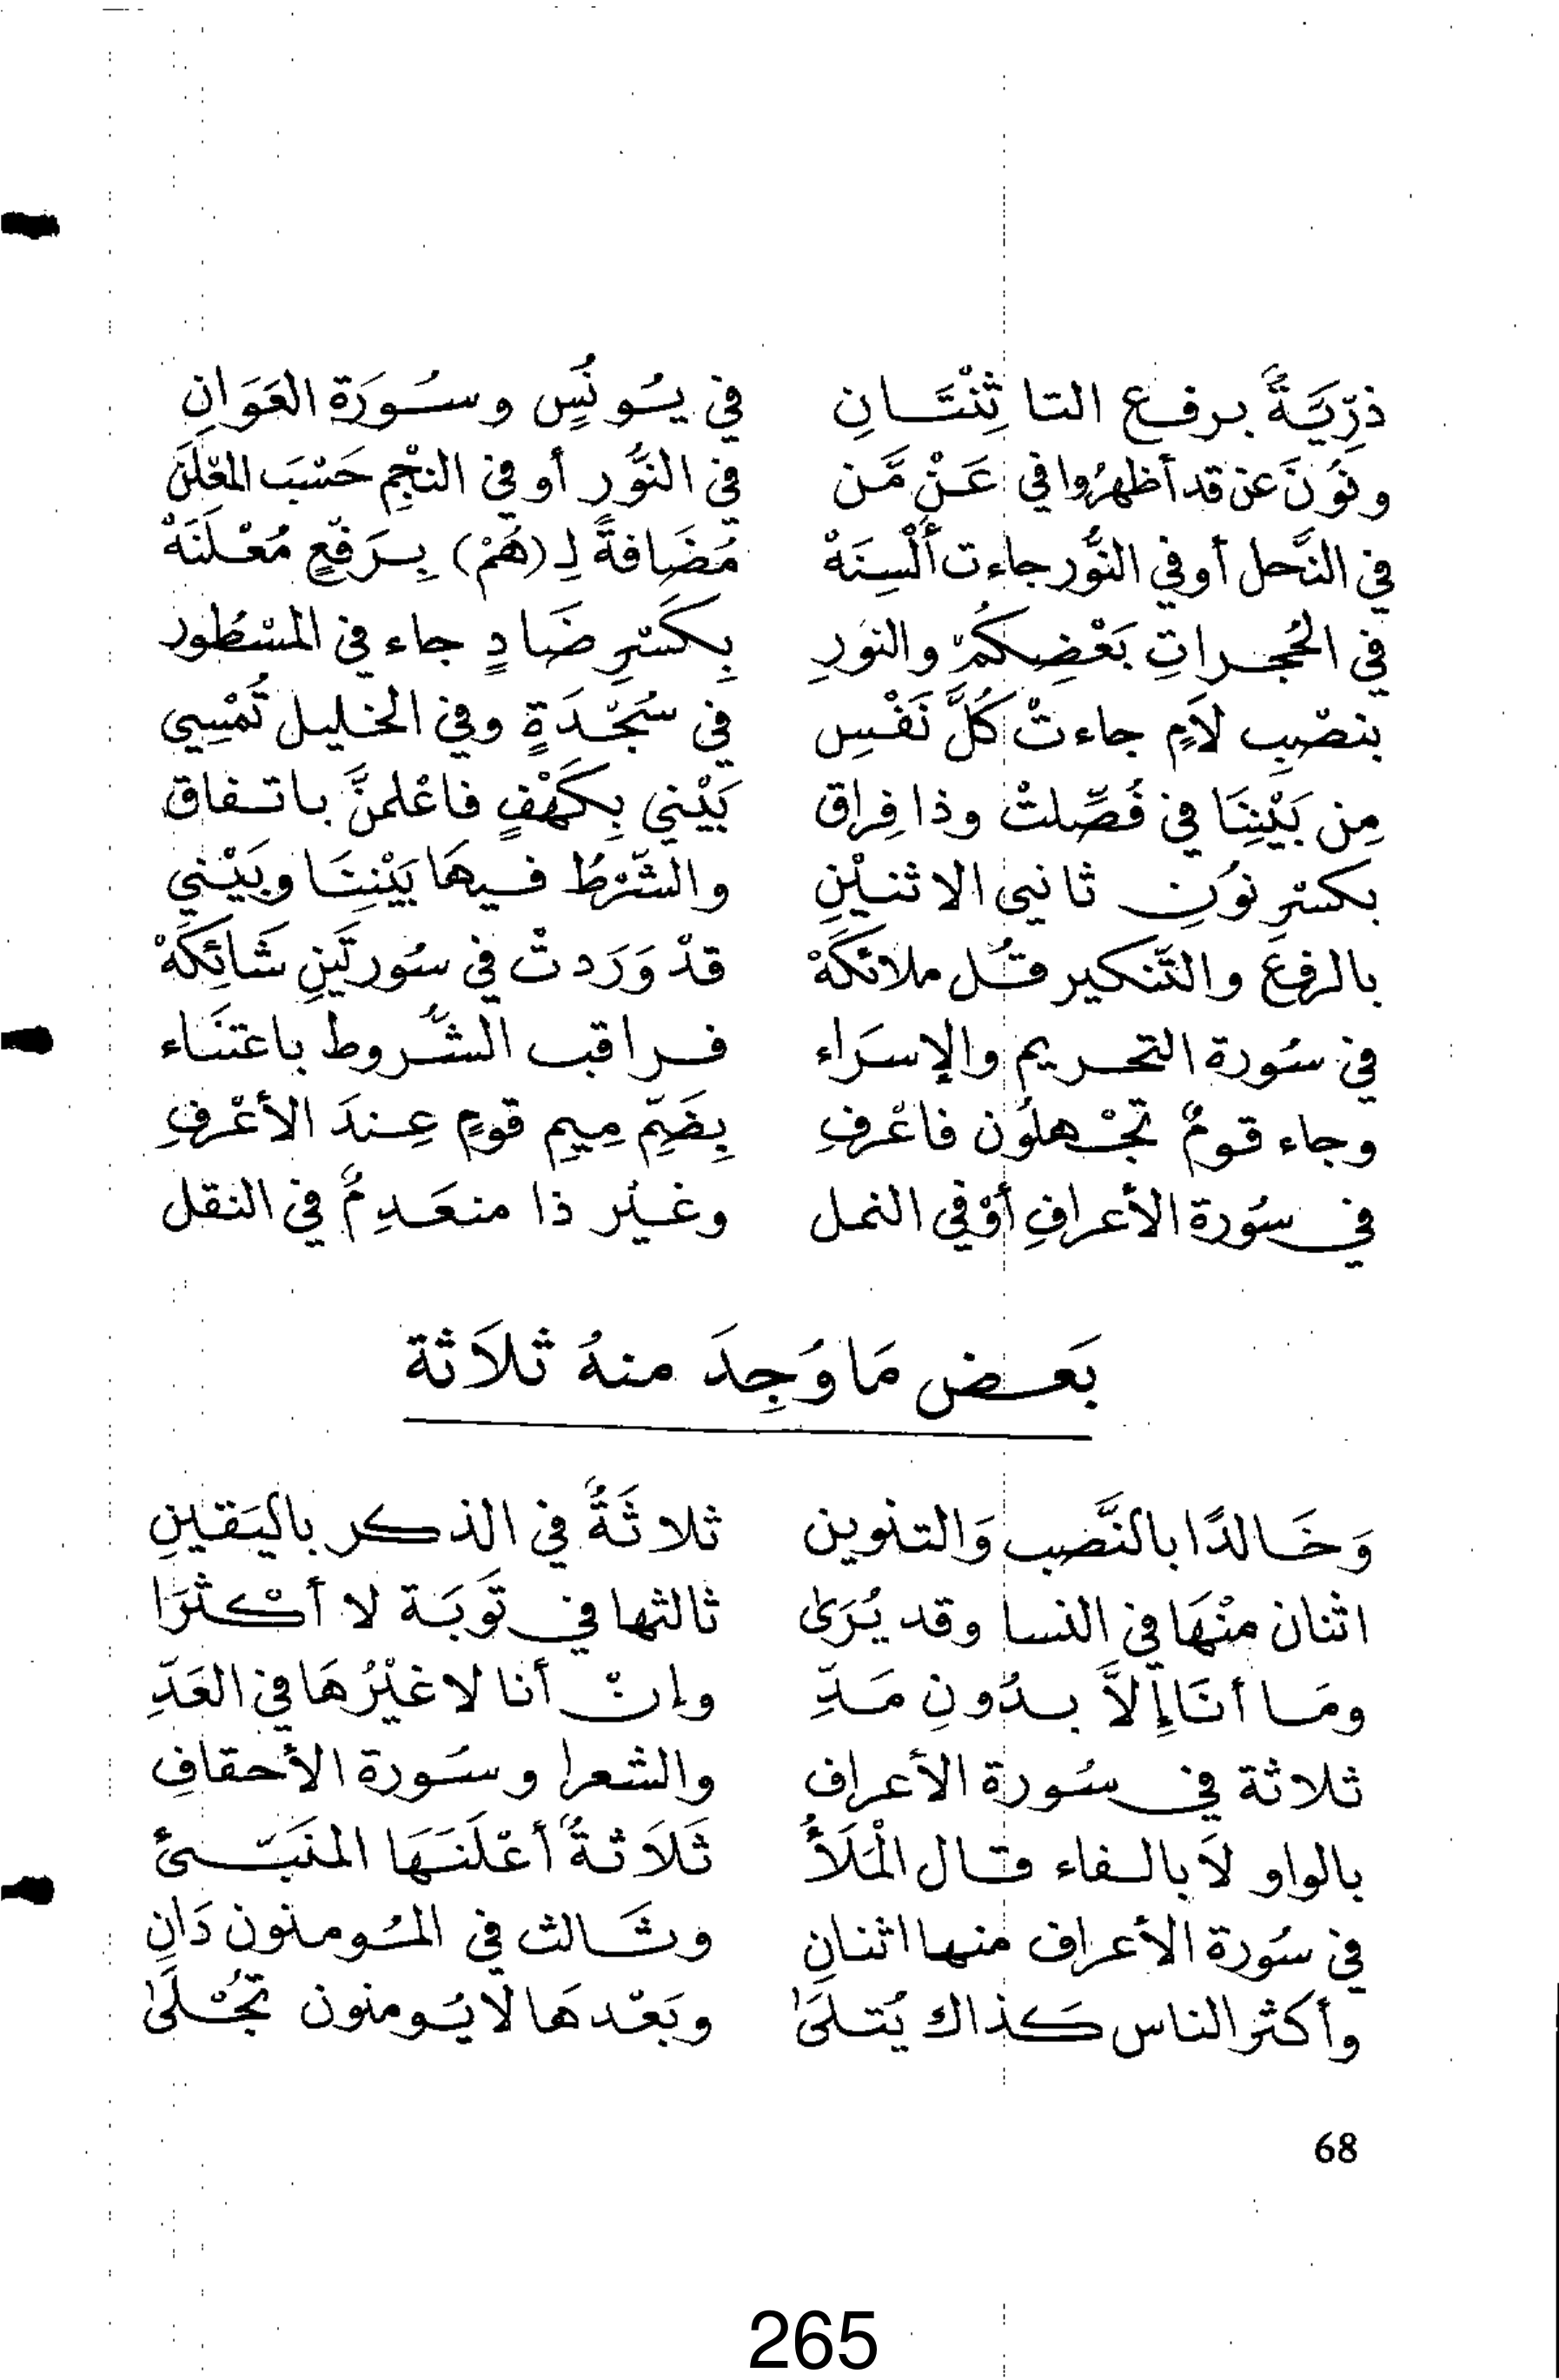 ذرِّيَّةٌ برفع التا ثِنْتَانِ في يُونُسٍ وسُورَة العَوَانِ
ونُونَ عن قد أظهرُوا في عَنْ مَّن في النُّورِ أو في النجْمِ حَسْبَ المعْلَن
في النَّحل أو في النُّور جاءت أَلْسِنَهْ مُضَافةً لِـ (هُمْ) بِرَفْعٍ مُعْلَنَهْ
في الحُجراتِ بَعْضِكُمْ والنورِ بِكَسْرِ ضَادٍ جاء في المسْطُور
بنصْبِ لاَمٍ جاءتْ كُلَّ نَفْسِ في سَجْدَةٍ وفي الخليل تُمْسِي
مِن بَيْنِنَا في فُصِّلتْ وذا فِراق بَيْنِي بِكَهْفٍ فاعْلمنَّ باتفاق
بكسْرِ نونِ ثاني الاثنيْنِ والشَّرْطُ فيهَا بَيْنِنَا وبَيْنِي
بالرفعَ والتَّنكير قُل ملائكَهْ قدْ وَرَدتْ في سُورتَينِ شَائِكَهْ
في سُورة التحريم والإسرَاء فراقب الشُّروط باعتنَاء
وجاء قومٌ تجْهلُون فاعْرفِ بِضَمِّ مِيمِ قومٍ عِندَ الأعْرفِ
في سُورة الأعرافِ أوْ في النمل وغيْر ذا منعَدِمٌ في النقل
بَعض مَا وُجِدَ منهُ ثلاَثة
وَخَالدًا بالنَّصبِ وَالتنوين ثلاثَةٌ في الذكر باليَقينِ
اثنان منْهَا في النسا وقد يُرَى ثالثها في تَوبَة لا أكْثرَا
ومَا أنَا إِلاَّ بدُونِ مَدِّ وإنْ أنا لا غيْرُهَا في العَدِّ
ثلاثة في سُورة الأعراف والشعرا وسُورة الأحقافِ
بالواو لاَ بالفاء قال الْمَلَأُ ثَلاَثةٌ أعْلَنَهَا المنَبِّئُ
في سُورة الأعراف منها اثنانِ وثَالث في المُومنون دَانِ
وأكثر الناس كَذاك يُتلَى وبَعْدهَا لا يُومنون تجْلَى
68
265